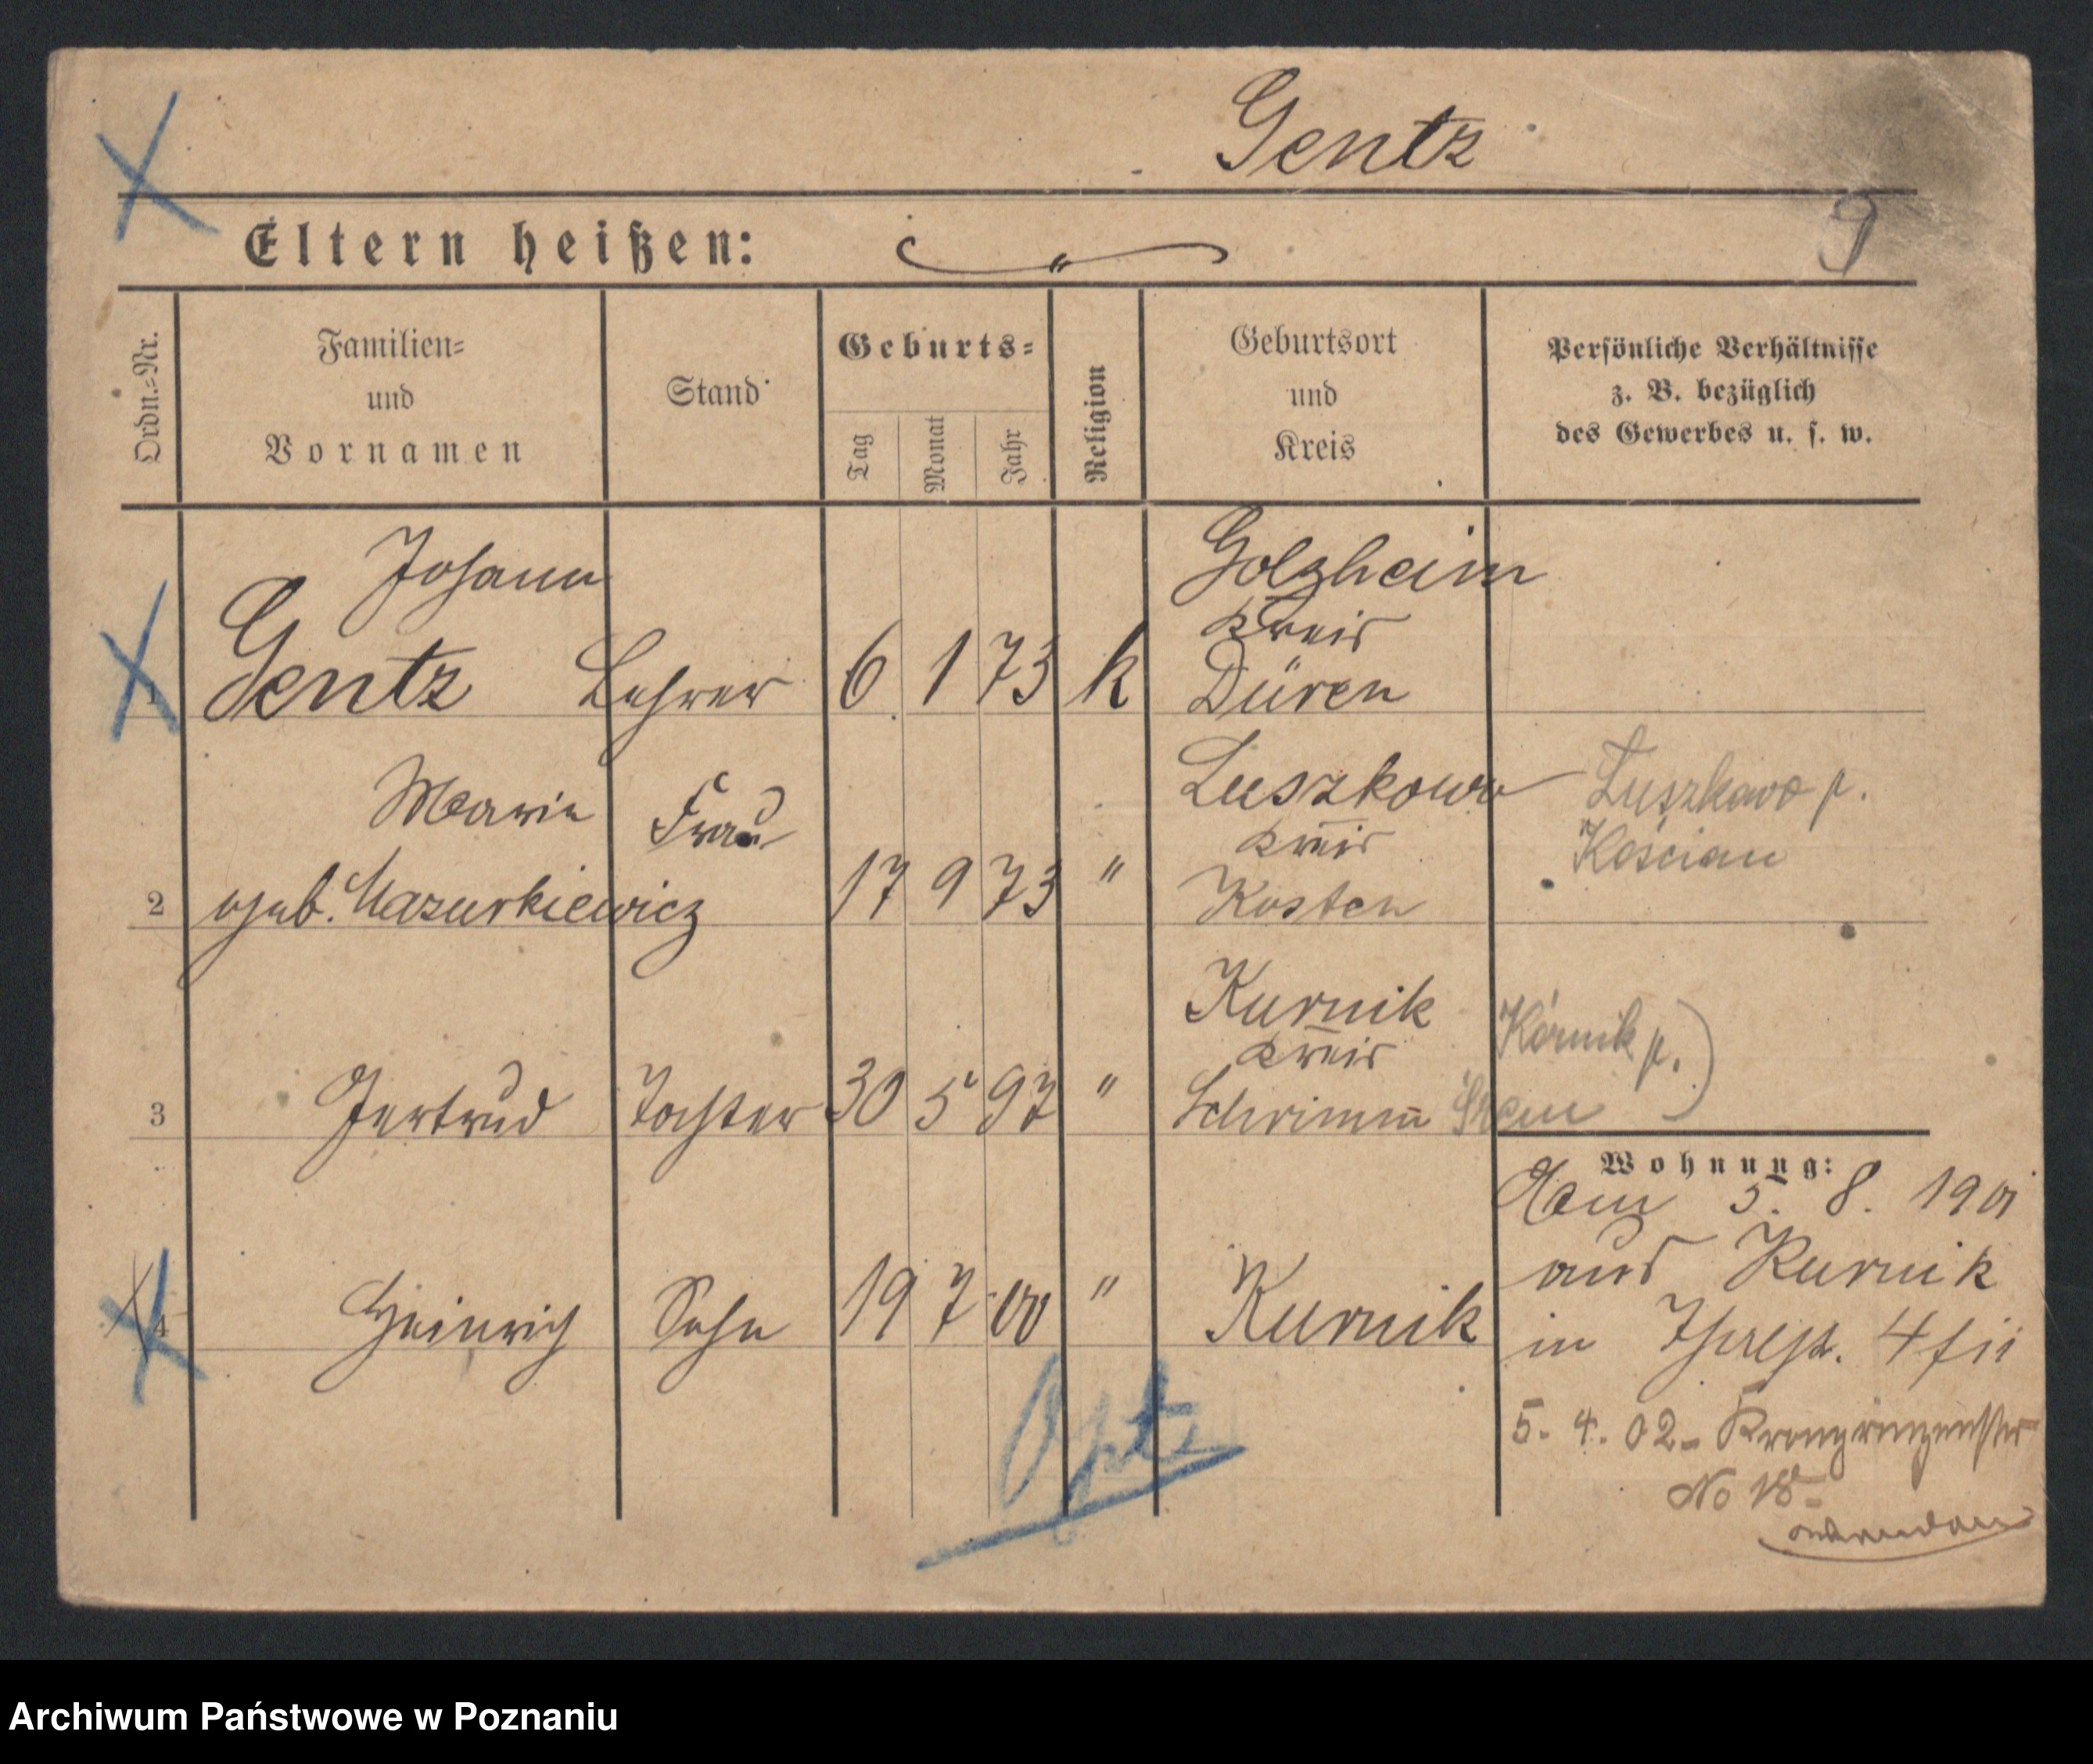 Gentz
Eltern heißen: "
9
Ordn.=Nr.
Familien=
und
Vornamen
Stand
Geburts=
Tag
Monat
Jahr
Religion
Geburtsort
und
Kreis
Persönliche Verhältnisse
z. B. bezüglich
des Gewerbes u. s. w.
Johann
Golzheim
Kreis
1 Gentz Lehrer 6 1 73 k Düren
Marie Frau
Luszkowo
Kreis
Łuszkowo p.
Kościan
2 geb. Mazurkiewicz 17 9 73 " Kosten
Kurnik
Kreis
Kórnik p.)
3 Gertrud Tochter 30 5 97 " Schrimm Śrem
Wohnung:
Vom 5. 8. 1901
aus Kurnik
4 Heinrich Sohn 19 7 00 " Kurnik
in 4
5. 4. 02 - Kronprinzenstr
No 18
Opt.
Archiwum Państwowe w Poznaniu